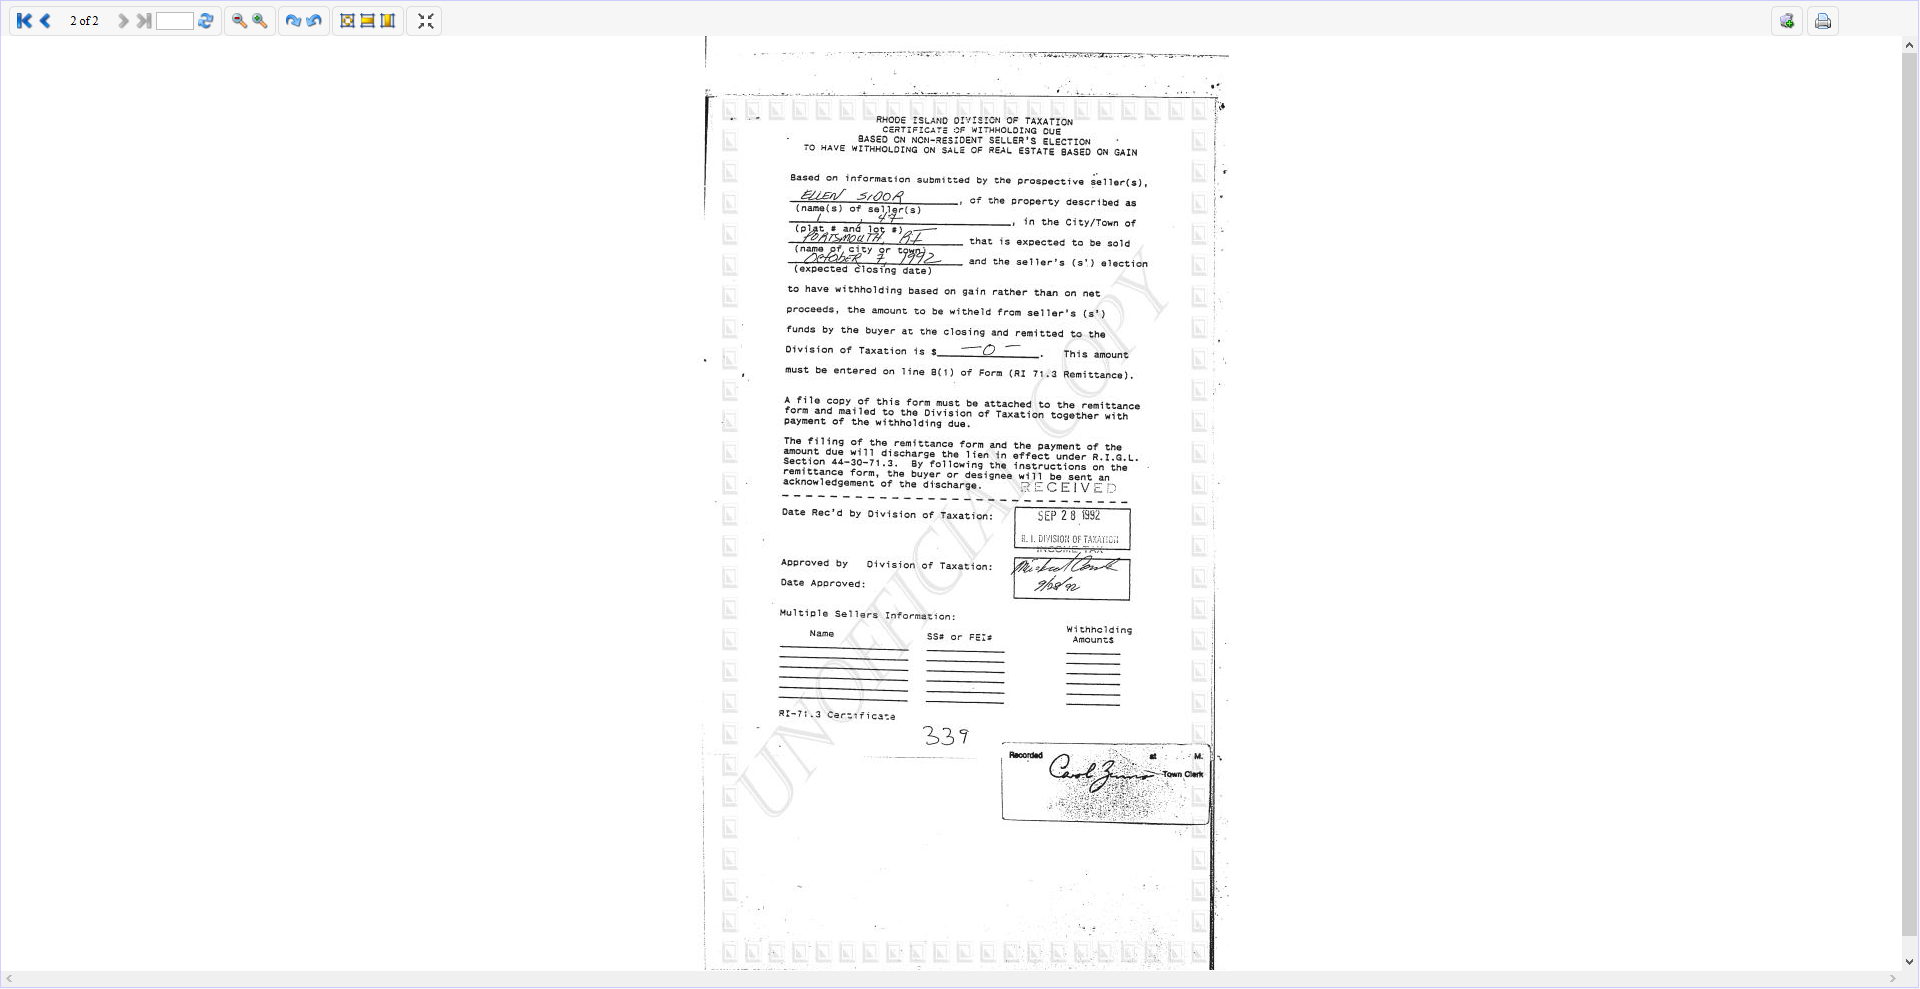 2 of 2
RHODE ISLAND DIVISION OF TAXATION
CERTIFICATE OF WITHHOLDING DUE
BASED ON NON-RESIDENT SELLER'S ELECTION
TO HAVE WITHHOLDING ON SALE OF REAL ESTATE BASED ON GAIN
Based on information submitted by the prospective seller(s),
ELLEN SIDOR, of the property described as
(name(s) of seller(s)
1, 47, in the City/Town of
(plat # and lot #)
PORTSMOUTH, RI that is expected to be sold
(name of city or town)
OCTOBER 7, 1992 and the seller's (s') election
(expected closing date)
to have withholding based on gain rather than on net
proceeds, the amount to be witheld from seller's (s')
funds by the buyer at the closing and remitted to the
Division of Taxation is $ -0-. This amount
must be entered on line 8(1) of Form (RI 71.3 Remittance).
A file copy of this form must be attached to the remittance
form and mailed to the Division of Taxation together with
payment of the withholding due.
The filing of the remittance form and the payment of the
amount due will discharge the lien in effect under R.I.G.L.
Section 44-30-71.3. By following the instructions on the
remittance form, the buyer or designee will be sent an
acknowledgement of the discharge.
RECEIVED
Date Rec'd by Division of Taxation: SEP 28 1992
R. I. DIVISION OF TAXATION
INCOME TAX
Approved by Division of Taxation:
Date Approved: 9/28/92
Multiple Sellers Information:
Name SS# or FEI# Withholding
Amount$
RI-71.3 Certificate
339
Recorded at M.
Carol Town Clerk
UNOFFICIAL COPY